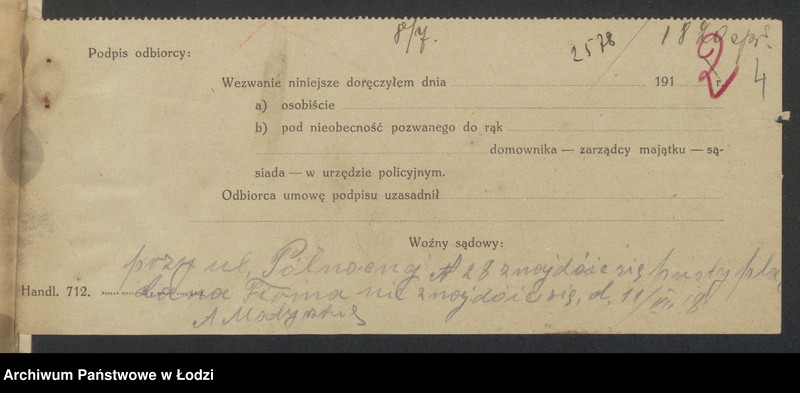 8/7.
2578 / 18
2
4
Podpis odbiorcy:
Wezwanie niniejsze doręczyłem dnia 191 r.
a) osobiście
b) pod nieobecność pozwanego do rąk
domownika — zarządcy majątku — są-
siada — w urzędzie policyjnym.
Odbiorca umowę podpisu uzasadnił
Woźny sądowy:
przy ul. Północnej № 28 znajdóie się pusty plac
Handl. 712.
Firma nie znajdóie się, d. 11/VII 18